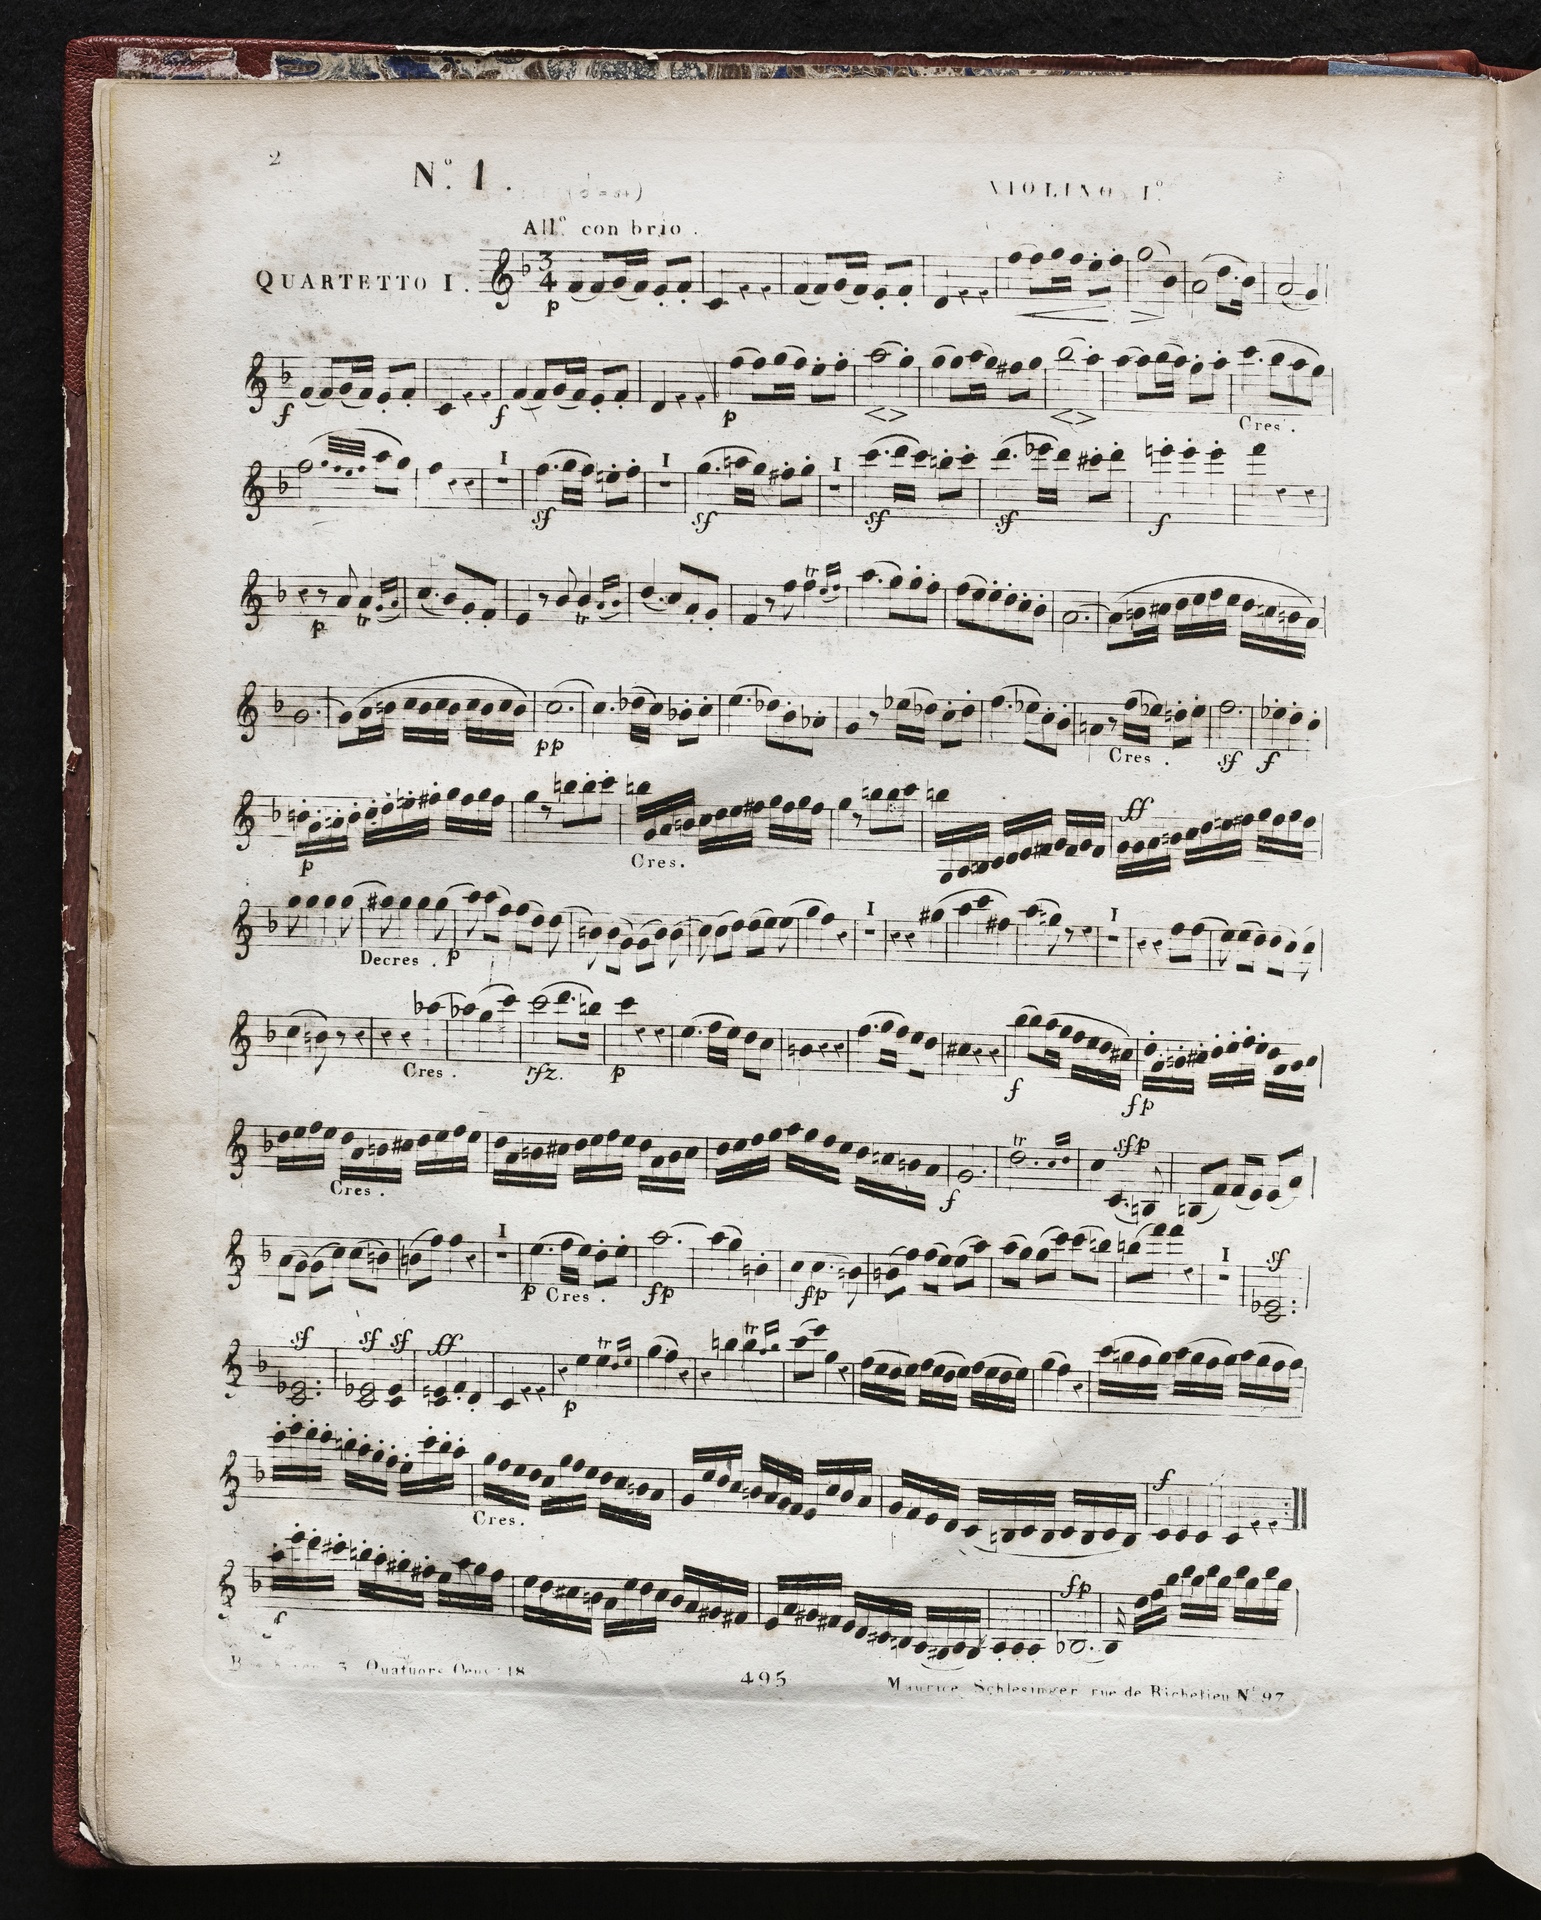 2
Nº. 1.
VIOLINO Iº.
Allº. con brio.
QUARTETTO I.
3
4
p
f f p <> <> Cres.
I I I
sf sf sf sf f
tr
p tr tr
pp Cres. sf f
ff
p Cres.
I I
Decres. p
Cres. rfz. p f fp
tr sfp
Cres. f
I I sf
p Cres. fp fp
sf sf sf ff tr tr
p
f
Cres.
fp
f
3 Quatuors Oeuv: 18
495
Maurice Schlesinger rue de Richelieu Nº 97